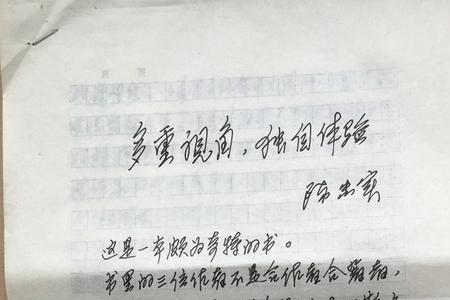 多重视角，独自体验
陈忠实
这是一本颇为奇特的书。
书里的三位作者不是合作者合著者，